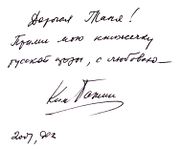 Дорогая Таня!
Прими мою книжечку
русской прозы, с любовью —
2007, дек